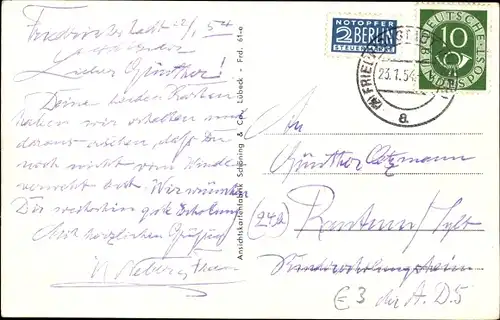 Friedrichstadt 22/1. 54
Lieber Günther!
Deine beiden Karten
haben wir erhalten und
daraus ersehen, daß Du
noch nicht vom Winde
verweht bist. Wir wünschen
Dir weiterhin gute Erholung
Mit herzlichen Grüßen
Ansichtskartenfabrik Schöning & Co., Lübeck - Frd. 61e
NOTOPFER
2 BERLIN
STEUERMARKE
DEUTSCHE
10
BUNDESPOST
23.1.54
a
An
Günther
(24b) Rantum / Sylt
Kindererholungsheim